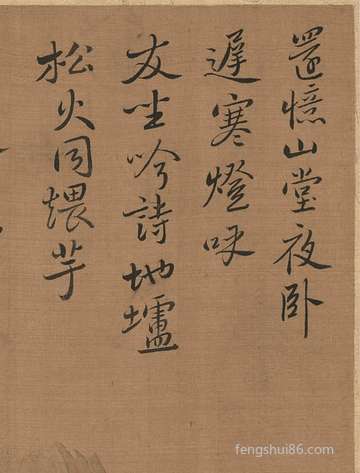 還憶山堂夜卧
遲寒燈呼
友坐吟詩地壚
松火同煨芋
fengshui86.com